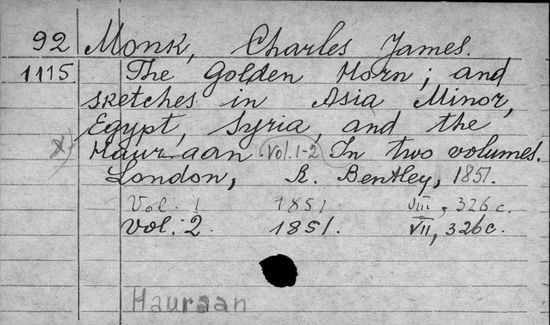 92 Monk, Charles James.
1115 The Golden Horn; and
sketches in Asia Minor,
Egypt, Syria, and the
x) Hauraan (Vol. 1-2) In two volumes.
London, R. Bentley, 1851.
Vol. 1 1851. VIII, 326 c.
Vol. 2. 1851. VII, 326 c.
Hauraan